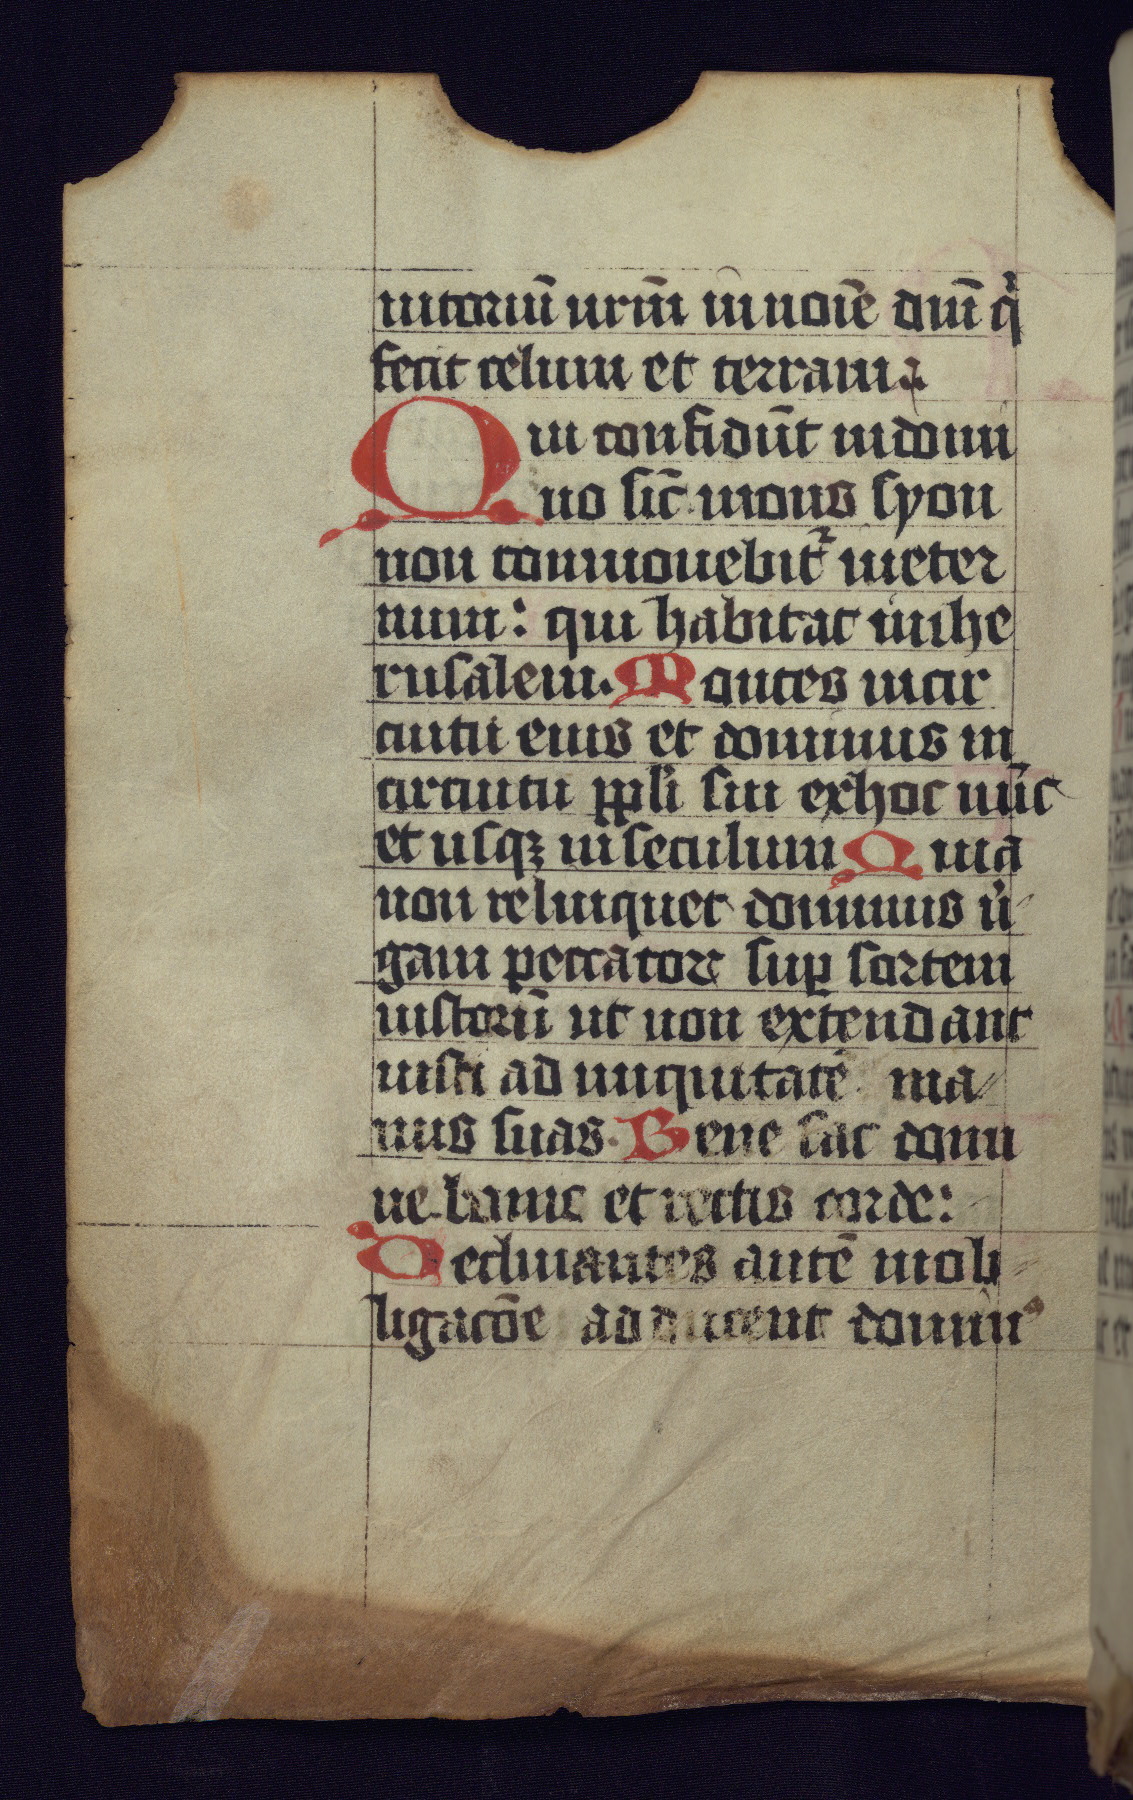 iutoriū nr̄m in noīe dnī q̇
fecit celum et terram
Qui confidūt in domi
no sic̄ mons syon
non commouebit᷑ in eter
num: qui habitat in ihe
rusalem. Montes in cir
cuitu eius et dominus in
circuitu ppl̄i sui ex hoc nūc
et usqꝫ in seculum Quia
non relinquet dominus u̇
gam peccatorꝝ suꝑ sortem
iustorū ut non extendant
iusti ad iniquitatē ma
nus suas. Bene fac domi
ne bonis et rectis corde:
Declinantes autē in ob
ligacōe adducent domin᷒